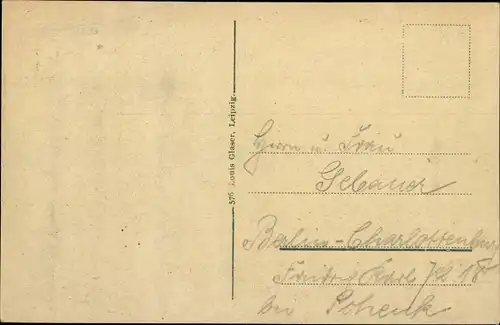 576 Louis Glaser, Leipzig.
Herrn u. Frau
Gebauer
Berlin-Charlottenburg
Karl Pl 18
bei Schenk